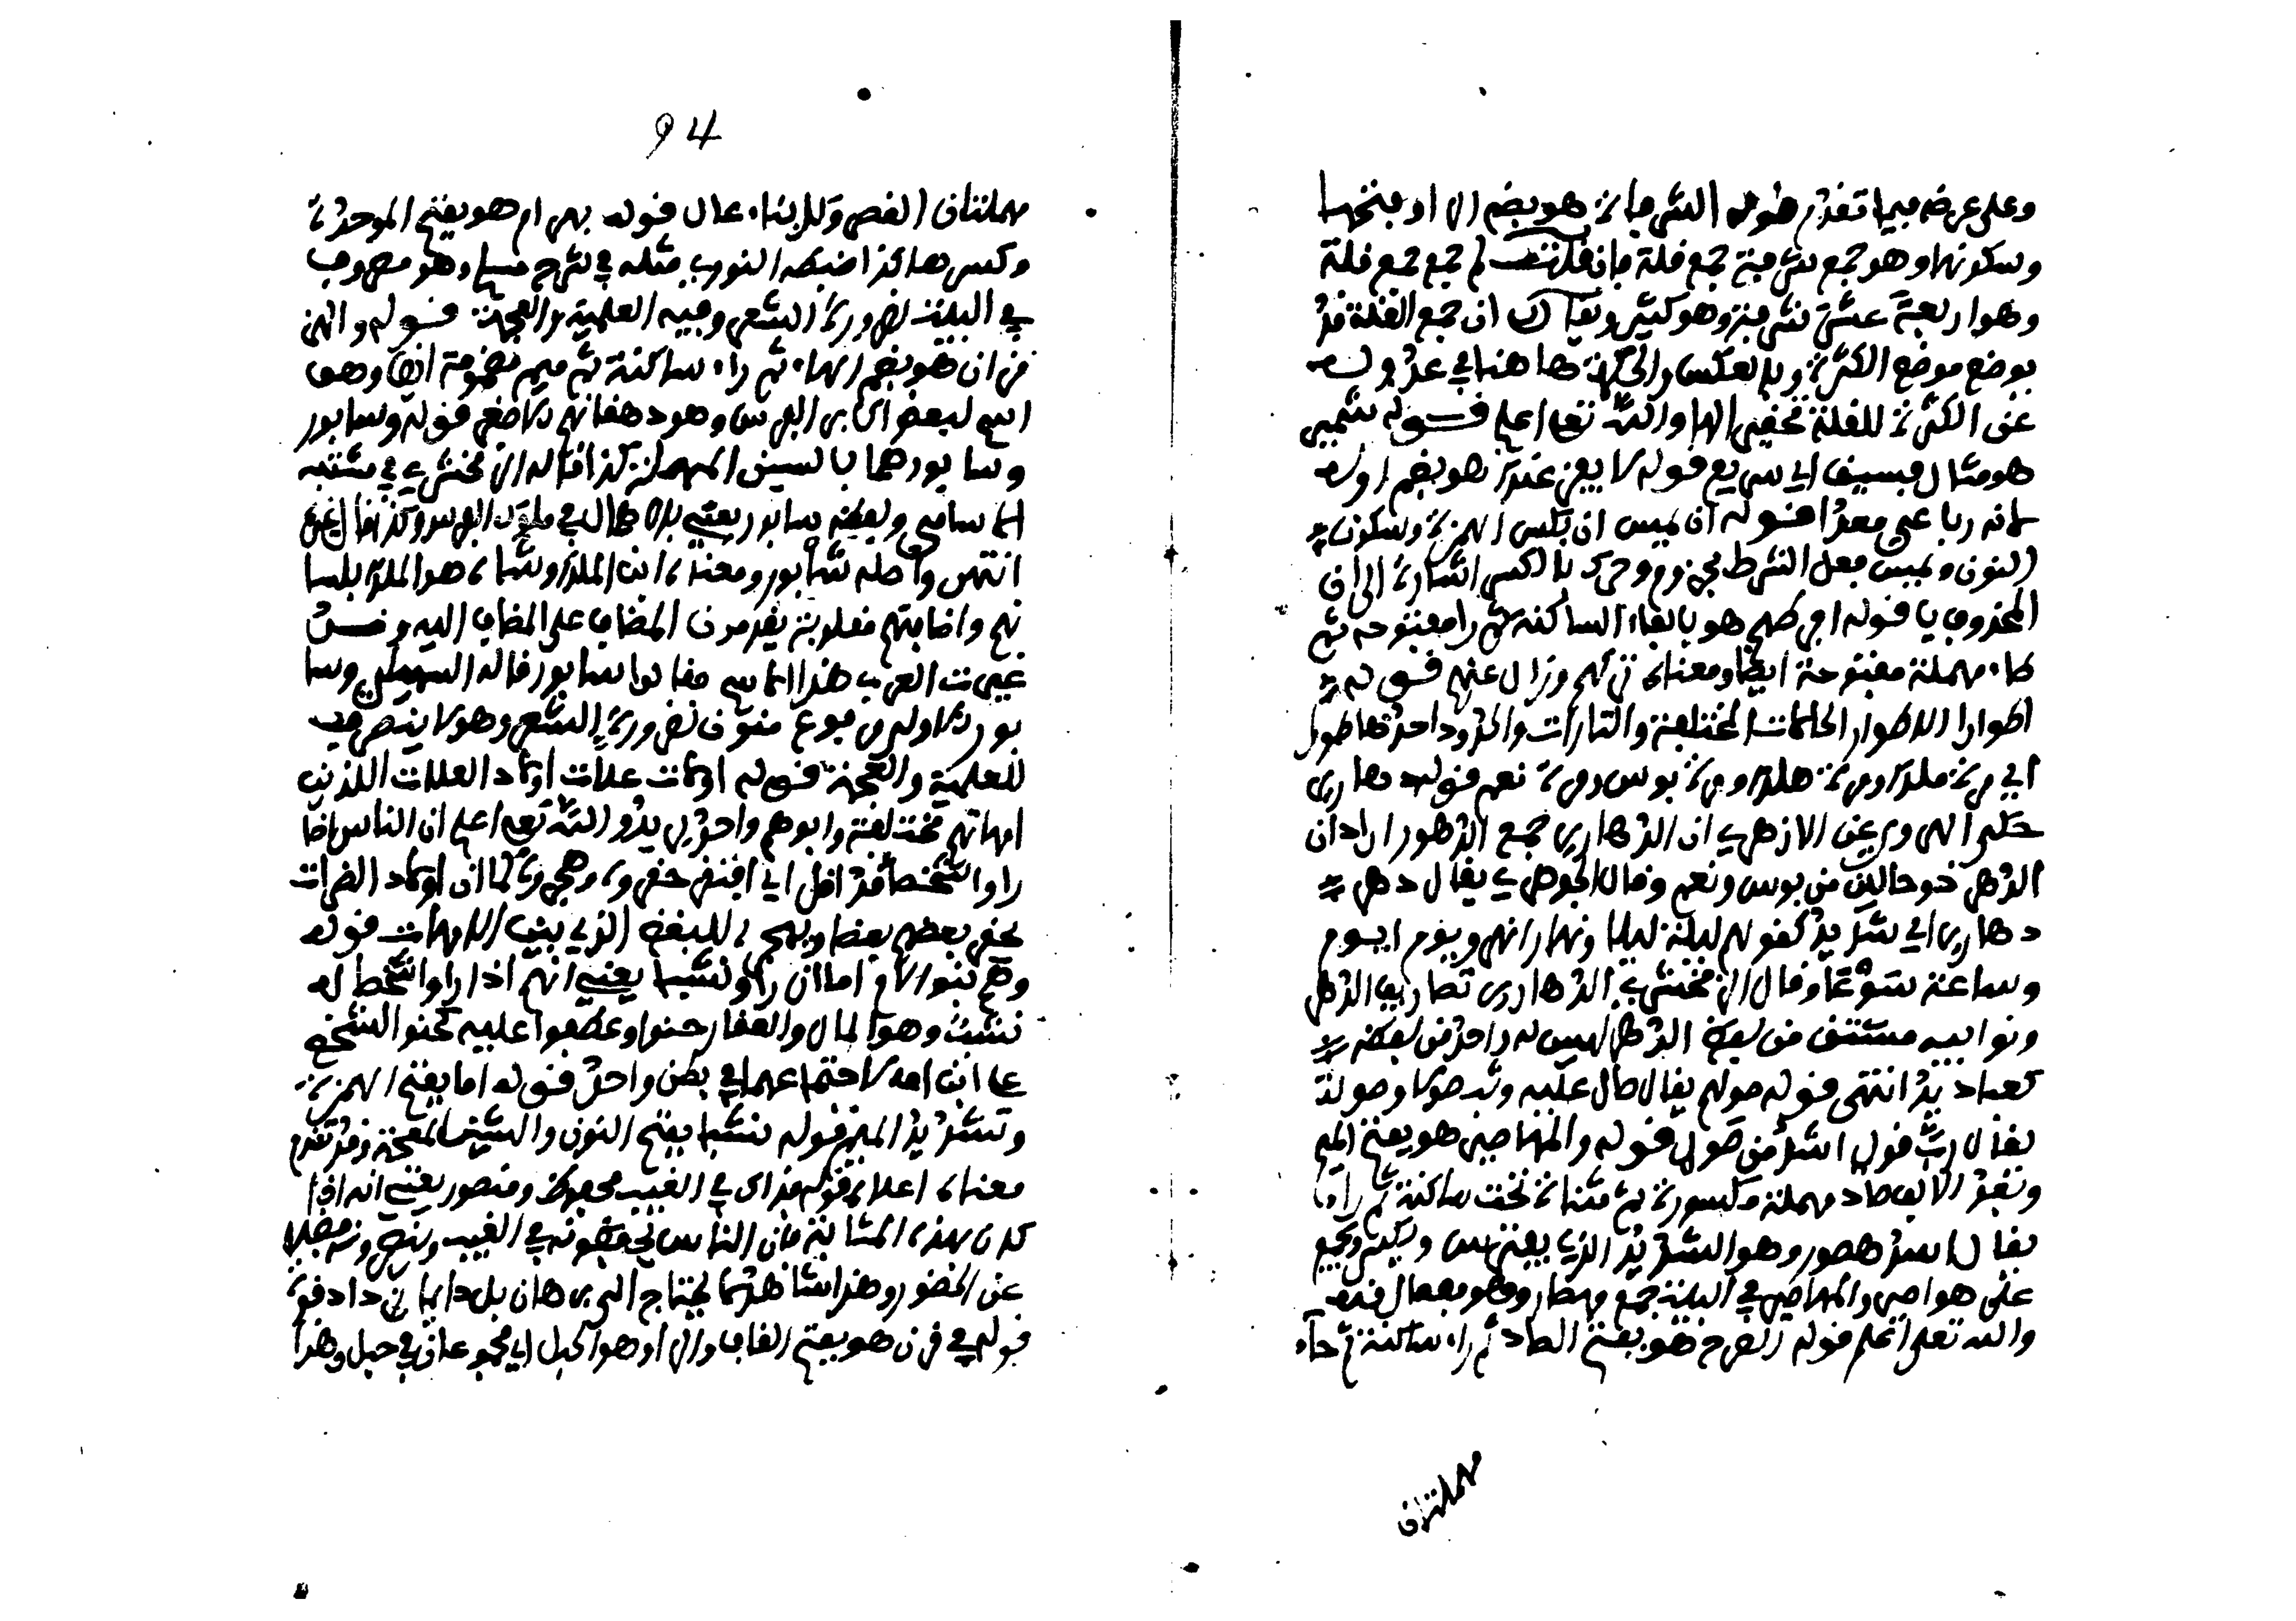 وعلى عرضه فيما تقدم قوله الشرفات هو بضم الراء وفتحها
وسكونها وهو جمع شرفة جمع قلة فإن قلت لم جمع جمع قلة
وهو أربعة عشر شرفة وهو كثير ويقال أن جمع القلة قد
يوضع موضع الكثرة وبالعكس والحكمة هاهنا في عدوله
عن الكثرة للقلة تحقيرا لها والله تعالى أعلم قوله شمير
هو مثال فسيق أي سريع قوله لا يفزعنك هو بضم أوله
لأنه رباعي معدا قوله أن يمس إن بكسر الهمزة وسكون
النون ويمس فعل الشرط مجزوم وحرك بالكسر إشارة إلى أن
المحذوف يا قوله افرطهم هو بالفاء الساكنة ثم را مفتوحة ثم
طاء مهملة مفتوحة أيضا ومعناه تركهم وزال عنهم قوله
أطوارا الاطوار الحالات المختلفة والتارات والحدود واحدها طور
أي مرة ملك ومرة هلك ومرة بوس ومرة نعم قوله دهارير
حكى الهروي عن الازهري ان الدهارير جمع الدهور اراد ان
الدهر ذو حالين من بوس ونعم وقال الجوهري يقال دهر
دهارير أي شديد كقولهم ليلة ليلا ونهار انهر ويوم ايوم
وساعة سوعا وقال الزمخشري الدهارير تصاريف الدهر
ونوايبه مشتق من لفظ الدهر ليس له واحد من لفظه
كعباديد انتهى قوله صولهم يقال صال عليه وثب صولا وصولة
يقال رب قول اشد من صول قوله والمهاصير هو بفتح الميم
وبعد الالف صاد مهملة مكسورة ثم مثناة تحت ساكنة ثم راء
يقال اسد هصور وهو الشديد الذي يفترس ويكسر ويجمع
على هواصر والمهاصير في البلنة جمع مهصار وهو مفعال منه
والله تعالى أعلم قوله الصرح هو بفتح الصاد ثم راء ساكنة ثم حاء
مهملتان
94
مهملتان القصر وللبناء عال قوله بهرام هو بفتح الموحدة
وكسرها كذا ضبطه النووي مثله في شرح مسلم وهو مصروف
في البلنة لضرورة الشعر وفيه العلمية والعجمة قوله والهر
مزان هو بضم الهاء ثم راء ساكنة ثم ميم مضمومة ايضا وهو
اسم لبعض اكابر الفرس وهو دهقانهم الاصغر قوله وسابور
وسابور هما بالسين المهملة كذا قاله الزمخشري في مشتبه
اسامي ولفظه سابور يعني بلا همال في ملوك الفرس وكذا قال غيره
انتهى وأصله شاه بور ومعناه ابن الملك وشاه هو الملك بلسا
نهم واضافتهم مقلوبة يقدمون المضاف على المضاف اليه وقد
غيرت العرب هذا الاسم فقالوا سابور قاله السهيلي وسا
بور الاول مرفوع منون لضرورة الشعر وهو لا ينصرف
للعلمية والعجمة قوله اولاد علات اولاد العلات اللذين
امهاتهم مختلفة وابوهم واحد يريد والله تعالى اعلم ان الناس اذا
راوا شخصا قد اقل أي افتقر حقروه وهجروه كما ان اولاد الضرات
يحقر بعضهم بعضا ويهجره للبغض الذي بين الامهات قوله
وهم بنوا الام اما ان راوا نشبا يعني انهم اذا راوا الشخص له
نشب وهو المال والعقار حنوا وعطفوا عليه كحنو الشخص
على ابن امه لاجتماعهما في بطن واحد قوله اما بفتح الهمزة
وتشديد الميم قوله نشبا بفتح النون والشين المعجمة وقد تقدم
معناه اعلاه قوله فذاك في الغيب محفوظ ومنصور يعني انه اذا
كان بهذه المثابة فان الناس يحفظونه في الغيب وينصرونه فضلا
عن الحضور وهذا مشاهد لا يحتاج الى برهان بل دايما يزداد قوة
قوله في قرن هو بفتح القاف والراء وهو الحبل أي مجموعان في حبل وهذا